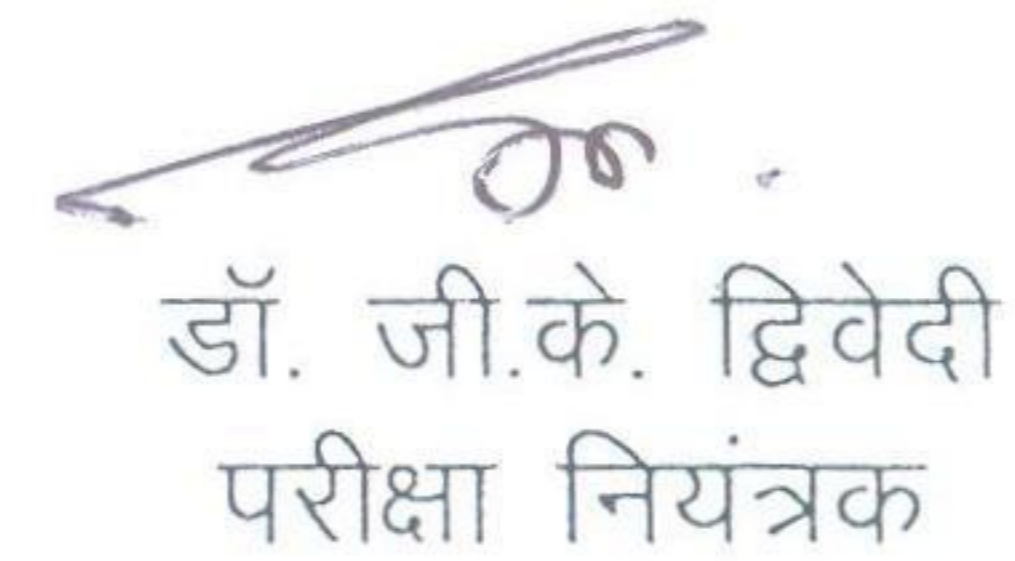 डॉ. जी.के. द्विवेदी
परीक्षा नियंत्रक